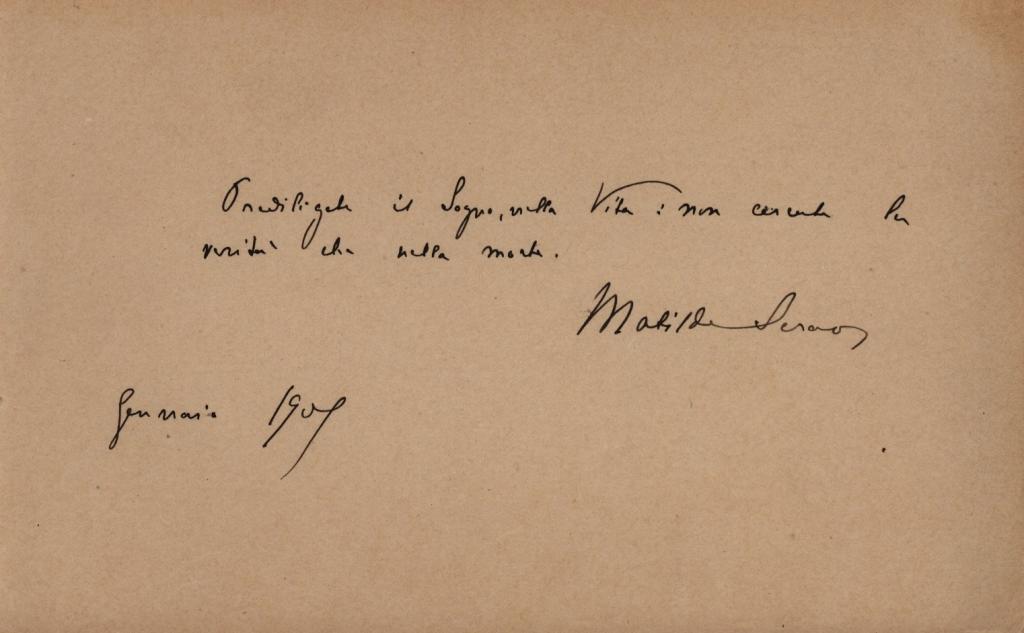 Prediligete il Sogno, nella Vita : non cercate la
verità che nella morte.
Matilde Serao
Gennaio